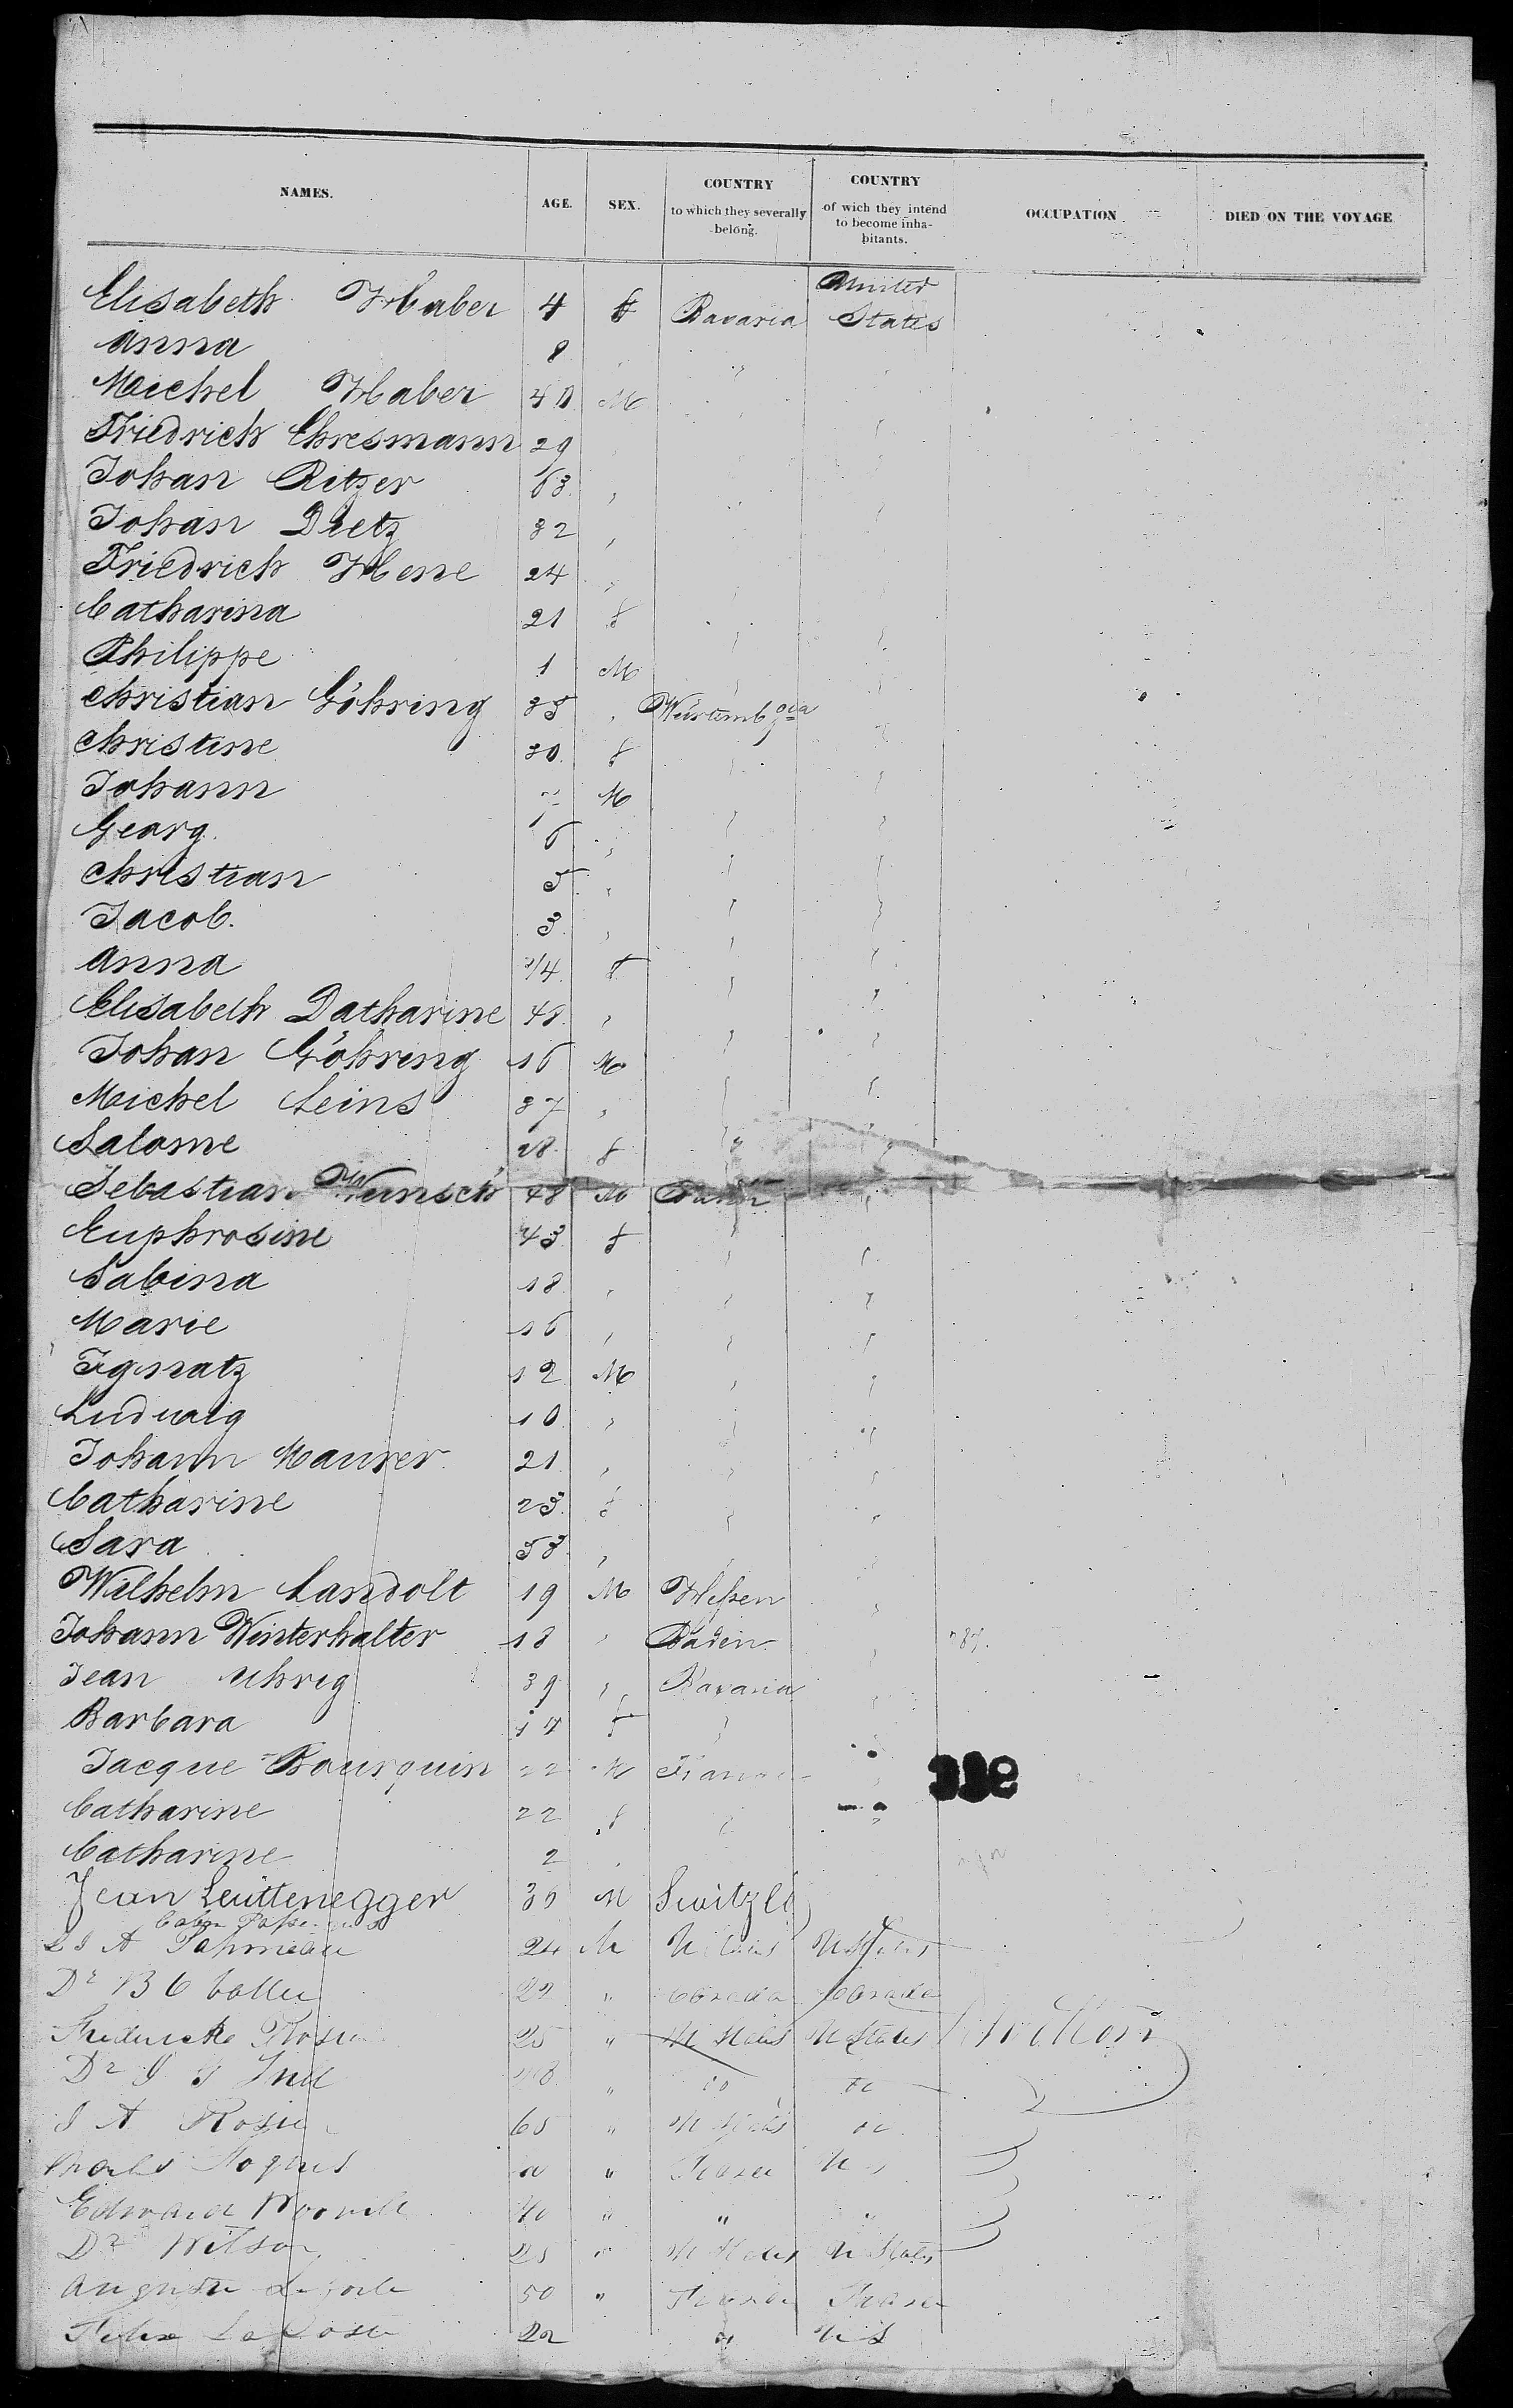 NAMES. AGE. SEX. COUNTRY to which they severally belong. COUNTRY of wich they intend to become inhabitants. OCCUPATION DIED ON THE VOYAGE
Elisabeth Haber 4 f Bavaria United States
Anna 8 "
Michel Haber 40 M
Friedrich Ehresmann 29
Johan Ritzer 63 "
Johan Dietz 32 "
Friedrich Hene 24 "
Catharina 21 f
Philippe 1 M
Christian Göhring 35 " Würtemb
Christine 30 f
Johann 7 M
Gearg 6 "
Christian 5 "
Jacob. 3 "
Anna 3/4 f
Elisabeth Datharine 48 "
Johan Göhring 16 M
Michel Leins 37 "
Salome 28 f
Sebastian Wunsch 48 M
Euphrosine 43 f
Sabina 18 "
Marie 16 "
Ignatz 12 M
Ludwig 10 "
Johann Maurer 21 "
Catharine 23 f
Sara 53 "
Wilhelm Landolt 19 M Hessen
Johann Winterhalter 18 " Baden
Jean Uhrig 39 " Bavaria
Barbara 17 f "
Jacque Bourquin 22 M France
Catharine 22 f "
Catharine 2
Jean Leuttenegger 36 M Switzld
24 M U States U States
Dr 29 " Canada Canada
25 " U States U States
Dr " do do
J A " U States do
Charles " France U S
Edward 40 " " "
Dr Wilson 25 " U States U States
50 " France France
Felix LaCoste 22 " U S